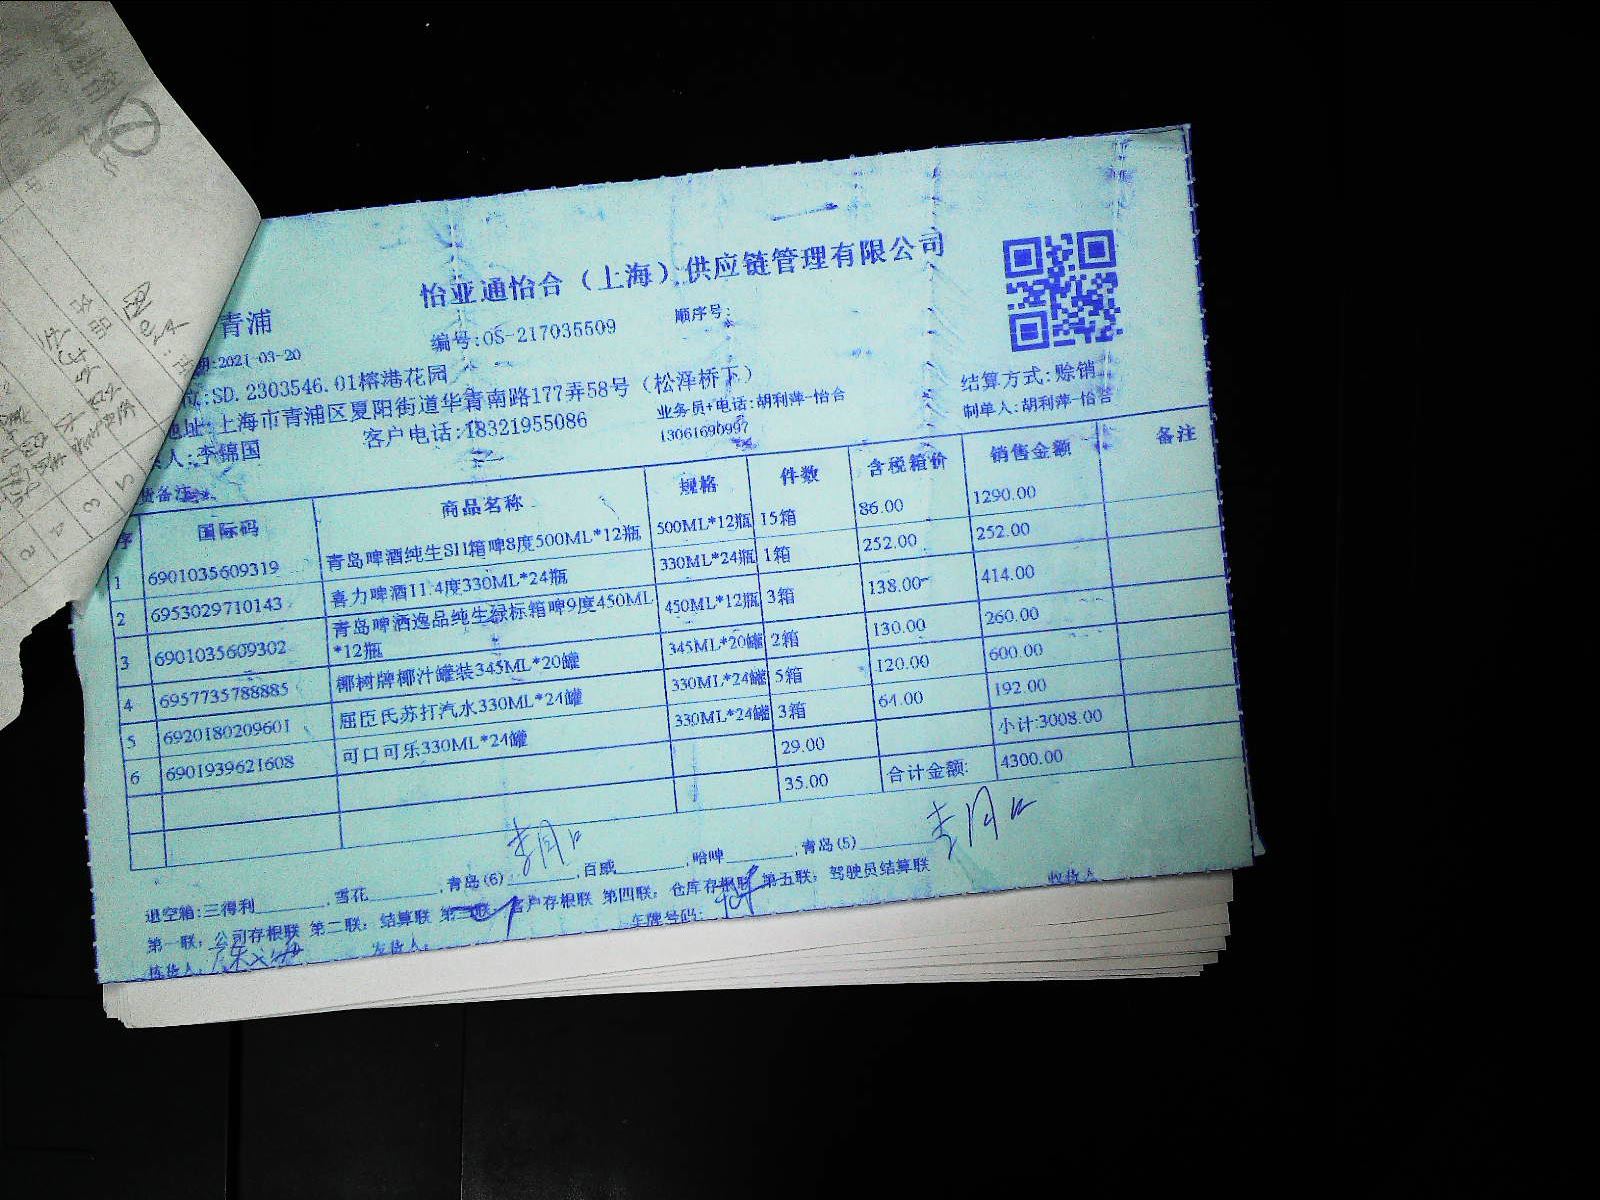 怡亚通怡合（上海）供应链管理有限公司
青浦
编号:OS-217035509
顺序号:
:2021-03-20
:SD.2303546.01榕港花园
地址:上海市青浦区夏阳街道华青南路177弄58号（松泽桥下）
结算方式:赊销
人:李锦国
客户电话:18321955086
业务员+电话:胡利萍-怡合
制单人:胡利萍-怡合
货备注:
序 国际码 商品名称 规格 件数 含税箱价 销售金额 备注
1 6901035609319 青岛啤酒纯生SH箱啤8度500ML*12瓶 500ML*12瓶 15箱 86.00 1290.00
2 6953029710143 喜力啤酒11.4度330ML*24瓶 330ML*24瓶 1箱 252.00 252.00
3 6901035609302 青岛啤酒逸品纯生绿标箱啤9度450ML*12瓶 450ML*12瓶 3箱 138.00 414.00
4 6957735788885 椰树牌椰汁罐装345ML*20罐 345ML*20罐 2箱 130.00 260.00
5 6920180209601 屈臣氏苏打汽水330ML*24罐 330ML*24罐 5箱 120.00 600.00
6 6901939621608 可口可乐330ML*24罐 330ML*24罐 3箱 64.00 192.00
29.00 小计:3008.00
35.00 合计金额: 4300.00
退空箱:三得利________,雪花________,青岛(6)________,百威________,哈啤________,青岛(5)________
第一联：公司存根联 第二联：结算联 第三联：客户存根联 第四联：仓库存根联 第五联：驾驶员结算联
拣货人: 发货人: 车牌号码: 收货人